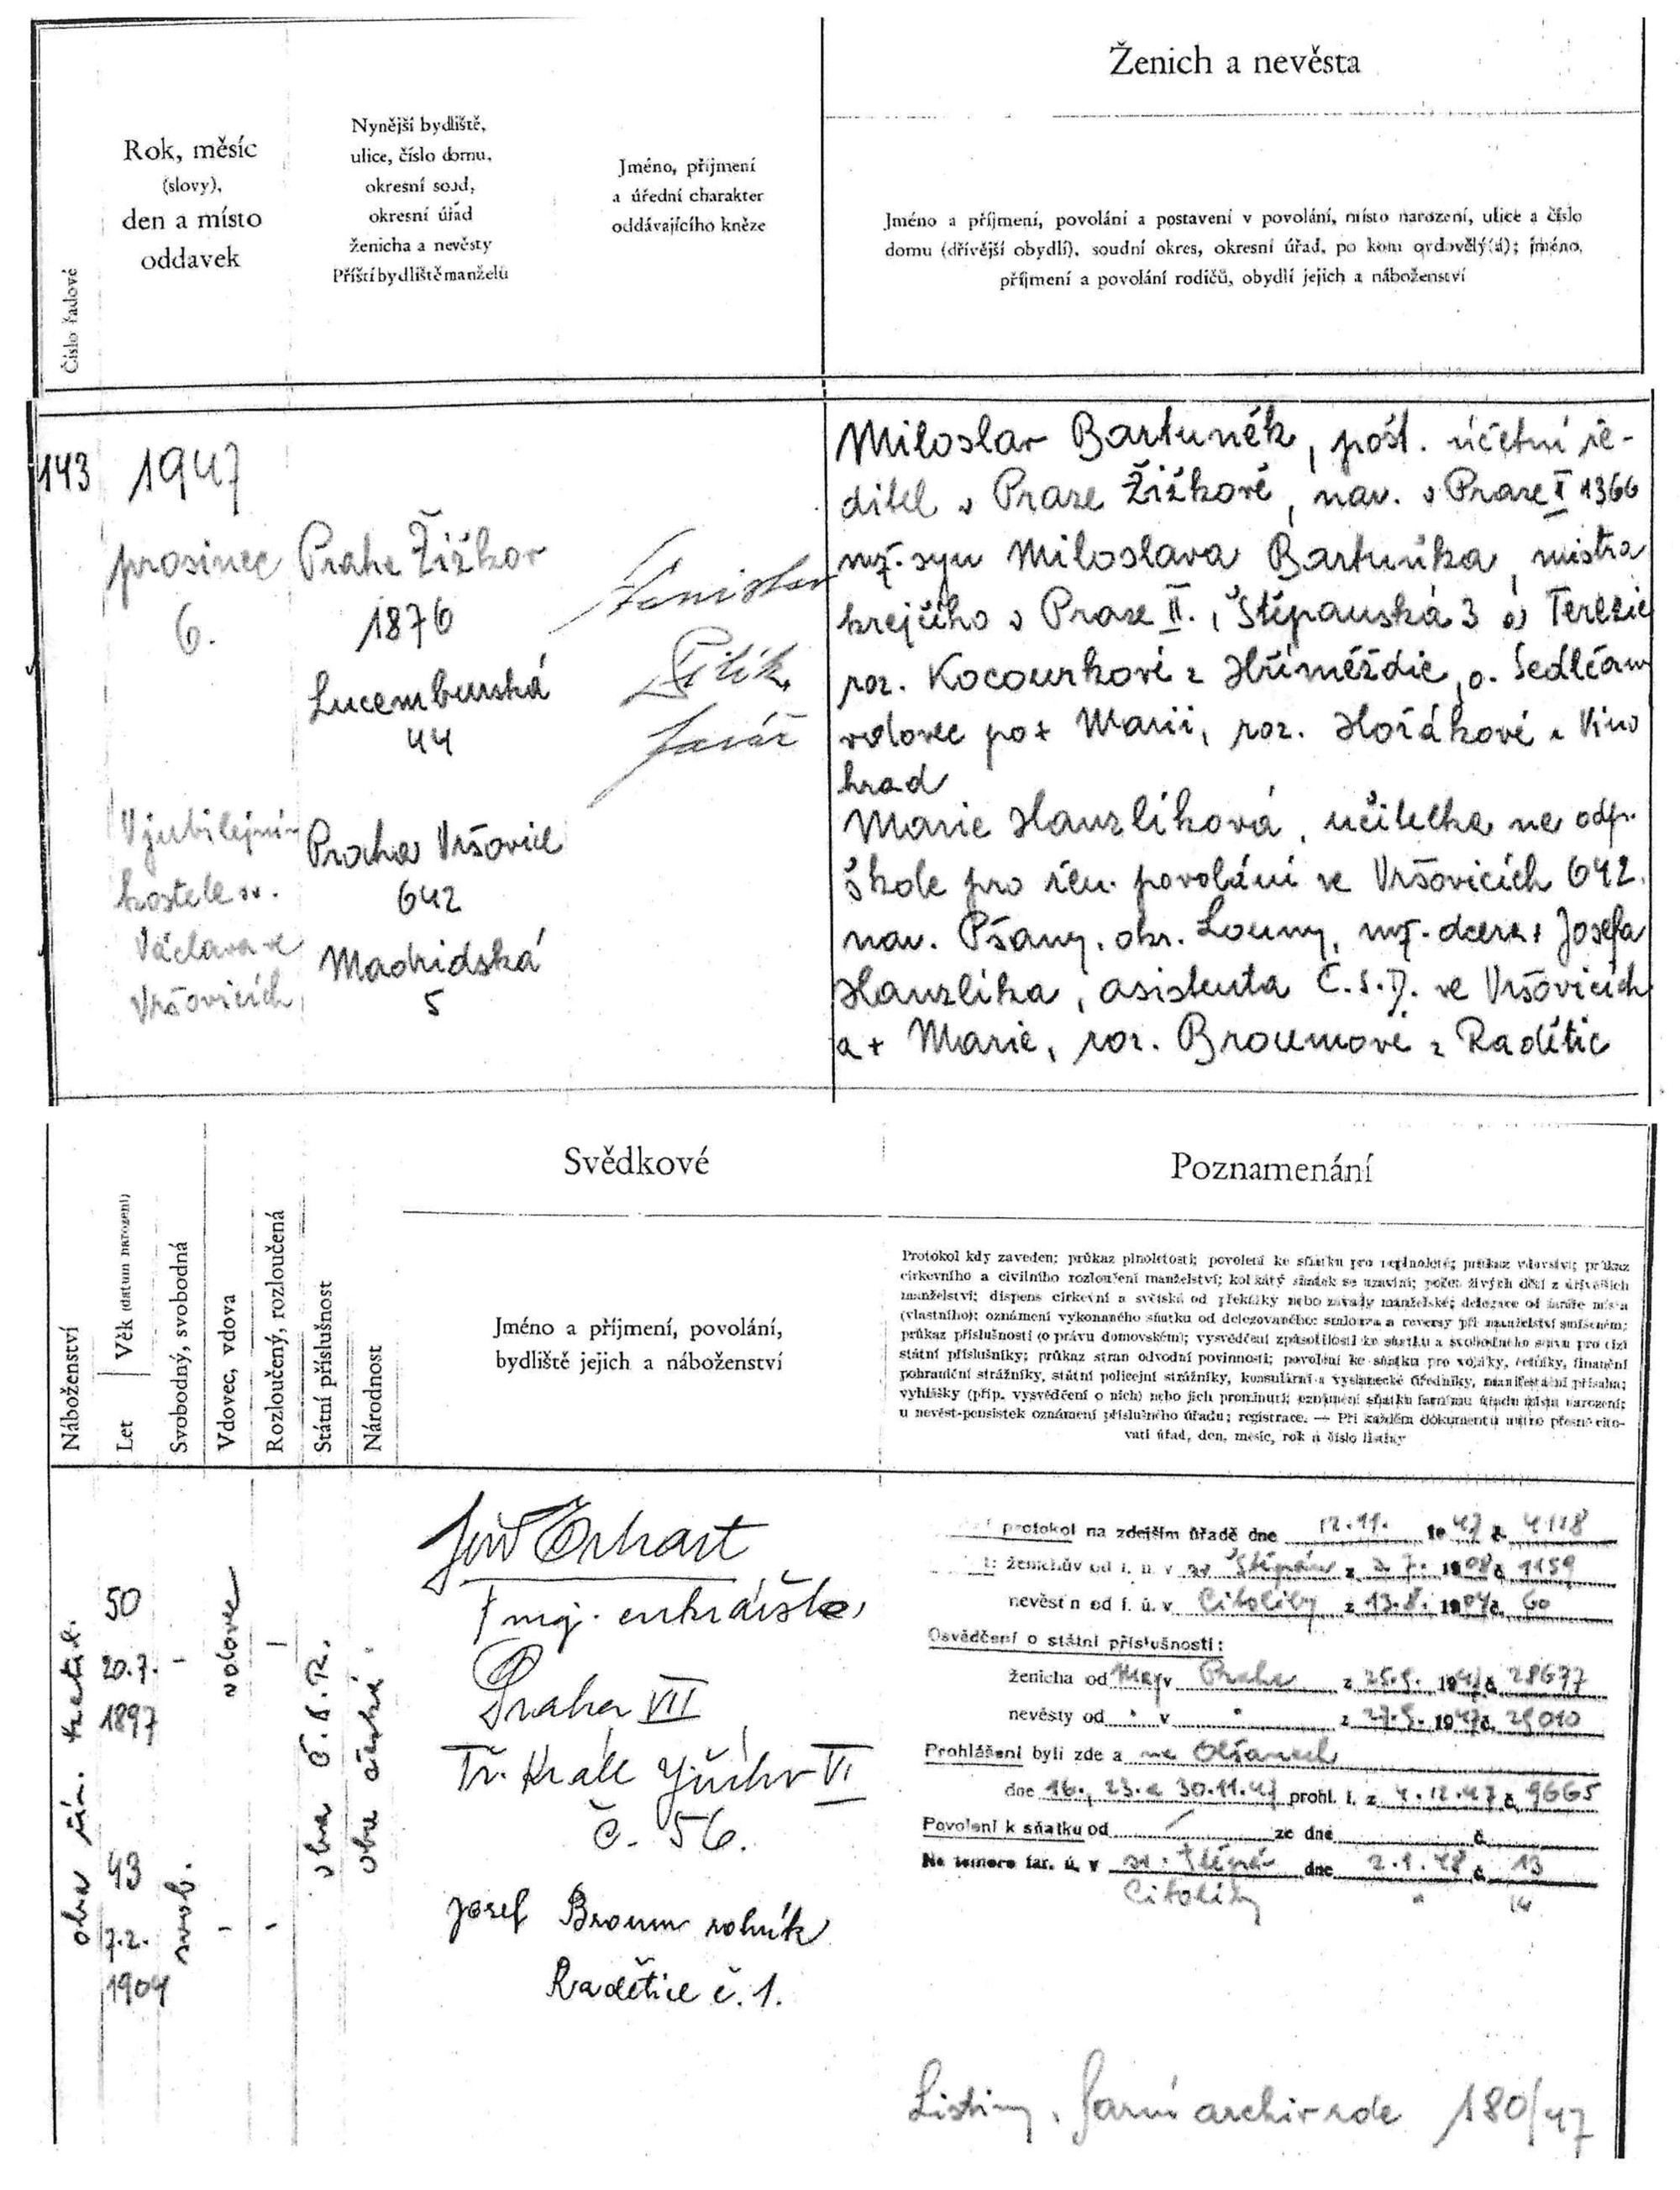 Ženich a nevěsta
Číslo řadové
Rok, měsíc
(slovy),
den a místo
oddavek
Nynější bydliště,
ulice, číslo domu,
okresní soud,
okresní úřad
ženicha a nevěsty
Příští bydliště manželů
Jméno, příjmení
a úřední charakter
oddávajícího kněze
Jméno a příjmení, povolání a postavení v povolání, místo narození, ulice a číslo
domu (dřívější obydlí), soudní okres, okresní úřad, po kom ovdovělý(á); jméno,
příjmení a povolání rodičů, obydlí jejich a náboženství
143
1947
prosinec
6.
V jubilejním
kostele sv.
Václava ve
Vršovicích
Praha Žižkov
1876
Lucemburská
44
Praha Vršovice
642
Madridská
5
Stanislav
Pilík
farář
Miloslav Bartuněk, pošt. účetní ře-
ditel v Praze Žižkově, nar. v Praze II 1366
mž. syn Miloslava Bartuňka, mistra
krejčího v Praze II., Štěpánská 3 a Terezie
roz. Kocourkové z Hřiměždic, o. Sedlčany
vdovec po + Marii, roz. Hořákové z Vino
hrad
Marie Hanzlíková, učitelka na odb.
škole pro žen. povolání ve Vršovicích 642.
nar. Pšany, okr. Louny, mž. dcera + Josefa
Hanzlíka, asistenta Č.S.D. ve Vršovicích
a + Marie, roz. Broumové z Radětic
Svědkové
Poznamenání
Náboženství
Let
Věk (datum narození)
Svobodný, svobodná
Vdovec, vdova
Rozloučený, rozloučená
Státní příslušnost
Národnost
Jméno a příjmení, povolání,
bydliště jejich a náboženství
Protokol kdy zaveden; průkaz plnoletosti; povolení ke sňatku pro neplnoleté; průkaz vdovství; průkaz
církevního a civilního rozloučení manželství; kolikátý sňatek se uzavírá; počet živých dětí z dřívějších
manželství; dispens církevní a světská od překážky nebo závady manželské; delegace od faráře místa
(vlastního); oznámení vykonaného sňatku od delegovaného; smlouva a reversy při manželství smíšeném;
průkaz příslušnosti (o právu domovském); vysvědčení způsobilosti ke sňatku a svobodného stavu pro cizí
státní příslušníky; průkaz stran odvodní povinnosti; povolení ke sňatku pro vojáky, četníky, finanční
pohraniční strážníky, státní policejní strážníky, konsulární a vyslanecké úředníky, manifestační přísaha;
vyhlášky (příp. vysvědčení o nich) nebo jich prominutí; oznámení sňatku farnímu úřadu místa narození;
u nevěst-pensistek oznámení příslušného úřadu; registrace. — Při každém dokumentu nutno přesně cito-
vati úřad, den, měsíc, rok a číslo listiny
oba řím. katol.
50
20.7.
1897
-
vdovec
-
43
7.2.
1904
svob.
-
-
oba Č.S.R.
oba česká
Erhart
Praha VII
Tř. Krále Jiřího VI
č. 56.
Josef Broum rolník
Radětice č. 1.
protokol na zdejším úřadě dne 12.11. 1947 č. 4118
ženichův od f. ú. v sv. Štěpán z 2.7. 1908 č. 1159
nevěstin od f. ú. v Citoliby z 13.8. 1904 č. 60
Osvědčení o státní příslušnosti:
ženicha od Mag v Praha z 25.9. 1947 č. 28677
nevěsty od " v " z 27.9. 1947 č. 29010
Prohlášeni byli zde a na Olšanech
dne 16., 23. a 30.11.47 prohl. l. z 4.12.47 č. 9665
Povolení k sňatku od / ze dne č.
Ne temere far. ú. v sv. Štěpán dne 2.1.48 č. 13
Citoliby " 14
Listiny, farní archiv zde 180/47